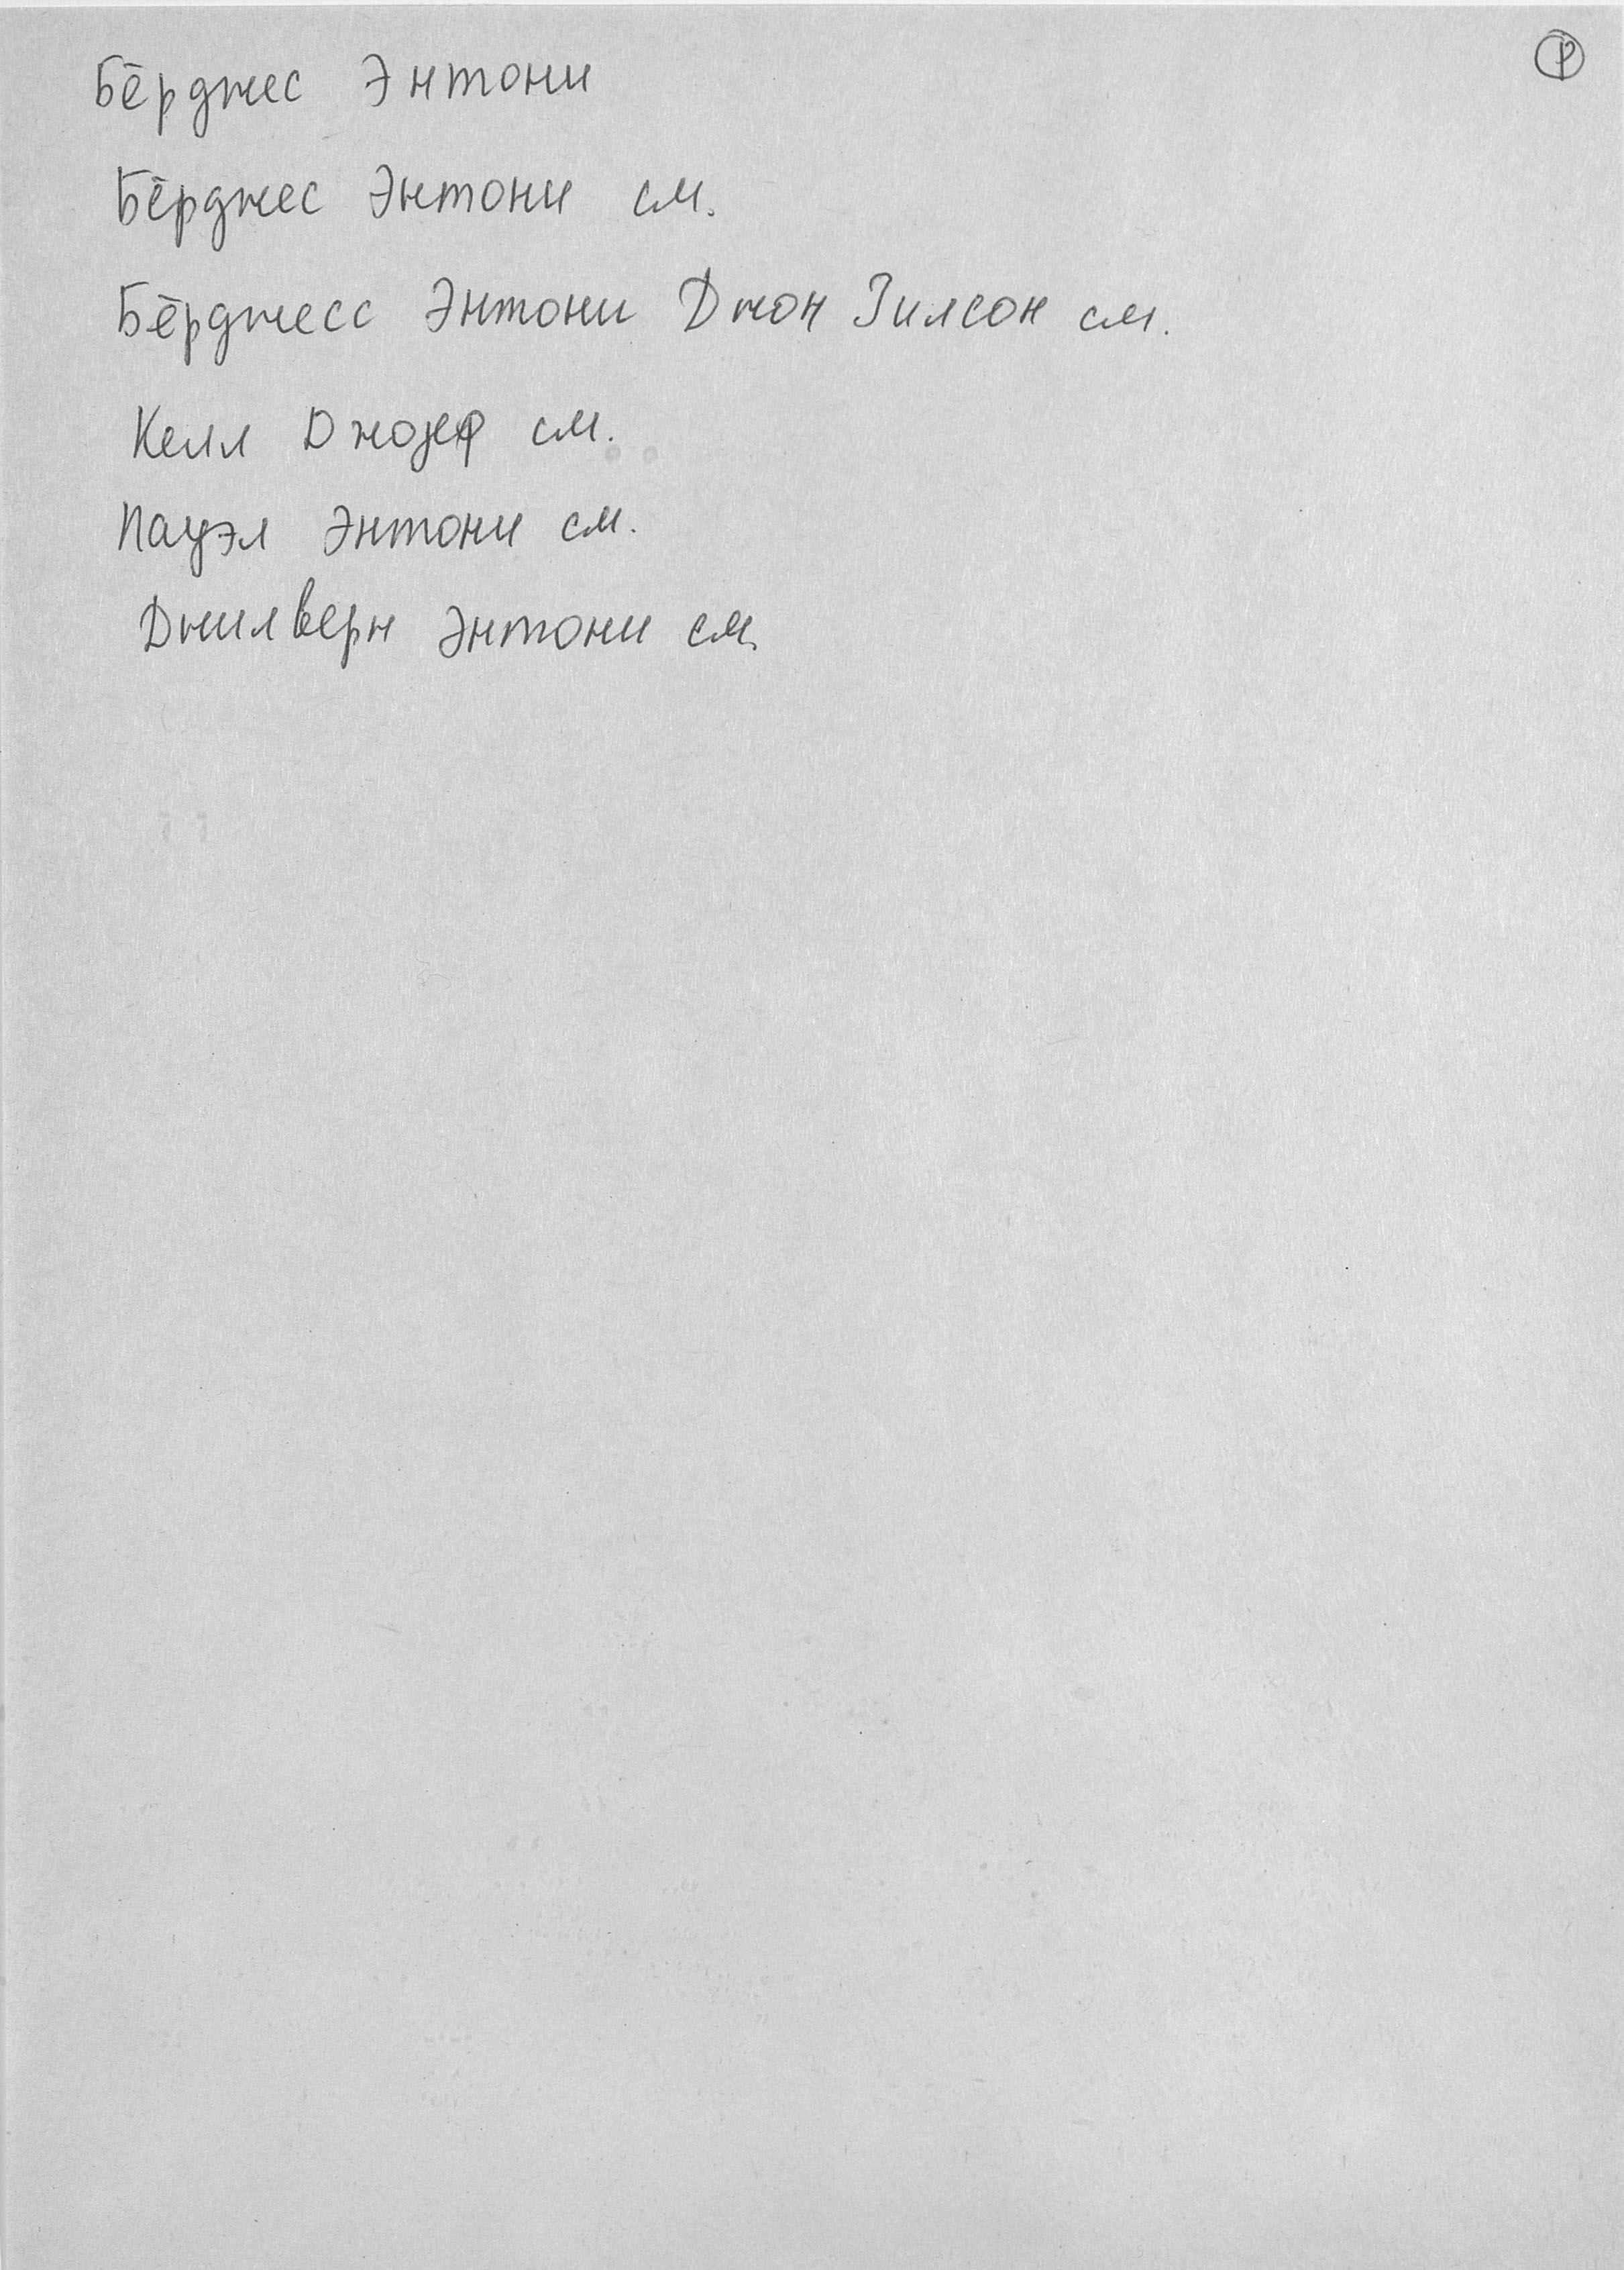 Бёрджес Энтони
Бёрджес Энтони см.
Бёрджесс Энтони Джон Вилсон см.
Келл Джозеф см.
Пауэл Энтони см.
Джилверн Энтони см.